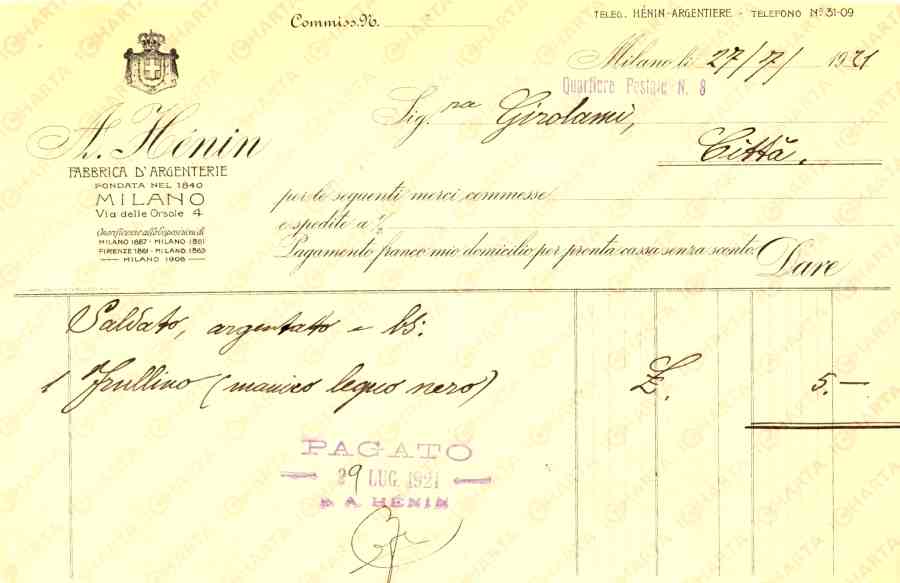 Commiss. N.
TELEG. HÉNIN-ARGENTIERE - TELEFONO N° 31-09
Milano li 27/7/ 1921
Quartiere Postale N. 8
Sig.ra Girolami,
Città.
A. Hénin
FABBRICA D'ARGENTERIE
FONDATA NEL 1840
MILANO
Via delle Orsole 4
Onorificenze alle Esposizioni di
MILANO 1887 - MILANO 1881
FIRENZE 1861 - MILANO 1853
MILANO 1906
per le seguenti merci commesse
e spedite a 1/2
Pagamento franco mio domicilio per pronta cassa senza sconto.
Dare
Saldato, argentato e
1 Frullino (manico legno nero) £. 5.—
PAGATO
29 LUG. 1921
A. HÉNIN
CHARTA